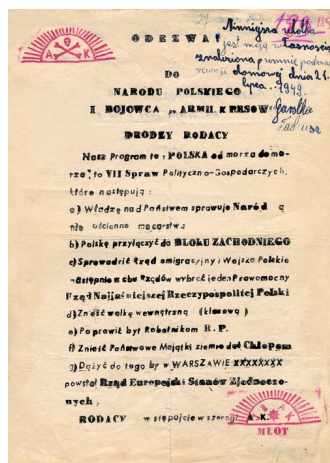 Niniejsza ulotka
jest moją własnością
znaleziona u mnie podczas
rewizji domowej dnia 21
lipca 1949.
A K
ODEZWA!
DO
NARODU POLSKIEGO
I BOJOWCA „ARMII KRESOW
DRODZY RODACY
Nasz Program to: POLSKA od morza do mo-
rza, to VII Spraw Polityczno-Gospodarczych,
które następują:
a) Władzę nad Państwem sprawuje Naród a
nie ościenne mocarstwa
b) Polskę przyłączyć do BLOKU ZACHODNIEGO
c) Sprowadzić Rząd emigracyjny i Wojsko Polskie
następnie z obu Rządów wybrać jeden Prawomocny
Rząd Najjaśniejszej Rzeczypospolitej Polski
d) Znieść walkę wewnętrzną (klasową)
e) Poprawić byt Robotnikom R. P.
f) Znieść Państwowe Majątki ziemie dać Chłopom
g) Dążyć do tego by w WARSZAWIE XXXXXXXX
powstał Rząd Europejski Stanów Zjednoczo-
nych,
RODACY wstępojcie w szeregi A K.
A K
MŁOT